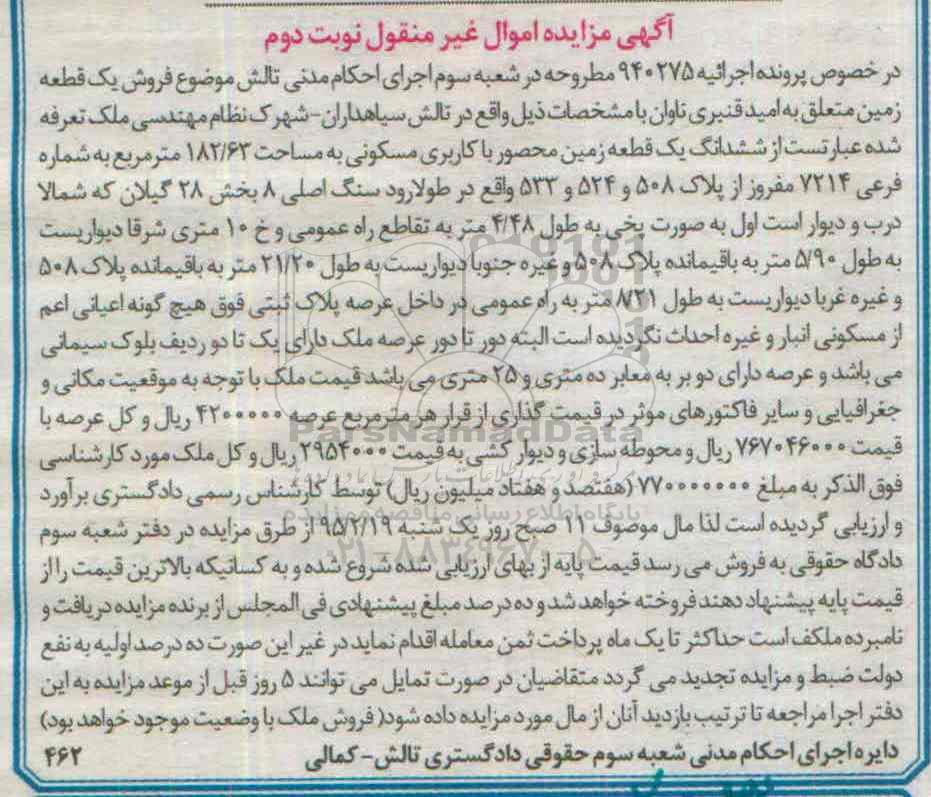 آگهی مزایده اموال غیر منقول نوبت دوم
در خصوص پرونده اجرائیه ۹۴۰۲۷۵ مطروحه در شعبه سوم اجرای احکام مدنی تالش موضوع فروش یک قطعه
زمین متعلق به امید قنبری ناوان با مشخصات ذیل واقع در تالش سیاهداران-شهرک نظام مهندسی ملک تعرفه
شده عبارتست از ششدانگ یک قطعه زمین محصور با کاربری مسکونی به مساحت ۱۸۲/۶۳ مترمربع به شماره
فرعی ۷۲۱۴ مفروز از پلاک ۵۰۸ و ۵۲۴ و ۵۳۳ واقع در طولارود سنگ اصلی ۸ بخش ۲۸ گیلان که شمالا
درب و دیوار است اول به صورت پخی به طول ۴/۴۸ متر به تقاطع راه عمومی و خ ۱۰ متری شرقا دیواریست
به طول ۵/۹۰ متر به باقیمانده پلاک ۵۰۸ و غیره جنوبا دیواریست به طول ۲۱/۲۰ متر به باقیمانده پلاک ۵۰۸
و غیره غربا دیواریست به طول ۸/۳۱ متر به راه عمومی در داخل عرصه پلاک ثبتی فوق هیچ گونه اعیانی اعم
از مسکونی انبار و غیره احداث نگردیده است البته دور تا دور عرصه ملک دارای یک تا دو ردیف بلوک سیمانی
می باشد و عرصه دارای دو بر به معابر ده متری و ۲۵ متری می باشد قیمت ملک با توجه به موقعیت مکانی و
جغرافیایی و سایر فاکتورهای موثر در قیمت گذاری از قرار هر مترمربع عرصه ۴۲۰۰۰۰۰ ریال و کل عرصه با
قیمت ۷۶۷۰۴۶۰۰۰ ریال و محوطه سازی و دیوار کشی به قیمت ۲۹۵۴۰۰۰ ریال و کل ملک مورد کارشناسی
فوق الذکر به مبلغ ۷۷۰۰۰۰۰۰۰ (هفتصد و هفتاد میلیون ریال) توسط کارشناس رسمی دادگستری برآورد
و ارزیابی گردیده است لذا مال موصوف ۱۱ صبح روز یک شنبه ۹۵/۲/۱۹ از طرق مزایده در دفتر شعبه سوم
دادگاه حقوقی به فروش می رسد قیمت پایه از بهای ارزیابی شده شروع شده و به کسانیکه بالاترین قیمت را از
قیمت پایه پیشنهاد دهند فروخته خواهد شد و ده درصد مبلغ پیشنهادی فی المجلس از برنده مزایده دریافت و
نامبرده ملکف است حداکثر تا یک ماه پرداخت ثمن معامله اقدام نماید در غیر این صورت ده درصد اولیه به نفع
دولت ضبط و مزایده تجدید می گردد متقاضیان در صورت تمایل می توانند ۵ روز قبل از موعد مزایده به این
دفتر اجرا مراجعه تا ترتیب بازدید آنان از مال مورد مزایده داده شود( فروش ملک با وضعیت موجود خواهد بود)
دایره اجرای احکام مدنی شعبه سوم حقوقی دادگستری تالش- کمالی ۴۶۲
ParsNamadData
پایگاه اطلاع رسانی مناقصه و مزایده
۰۲۱-۸۸۳۴۹۶۷۰-۵